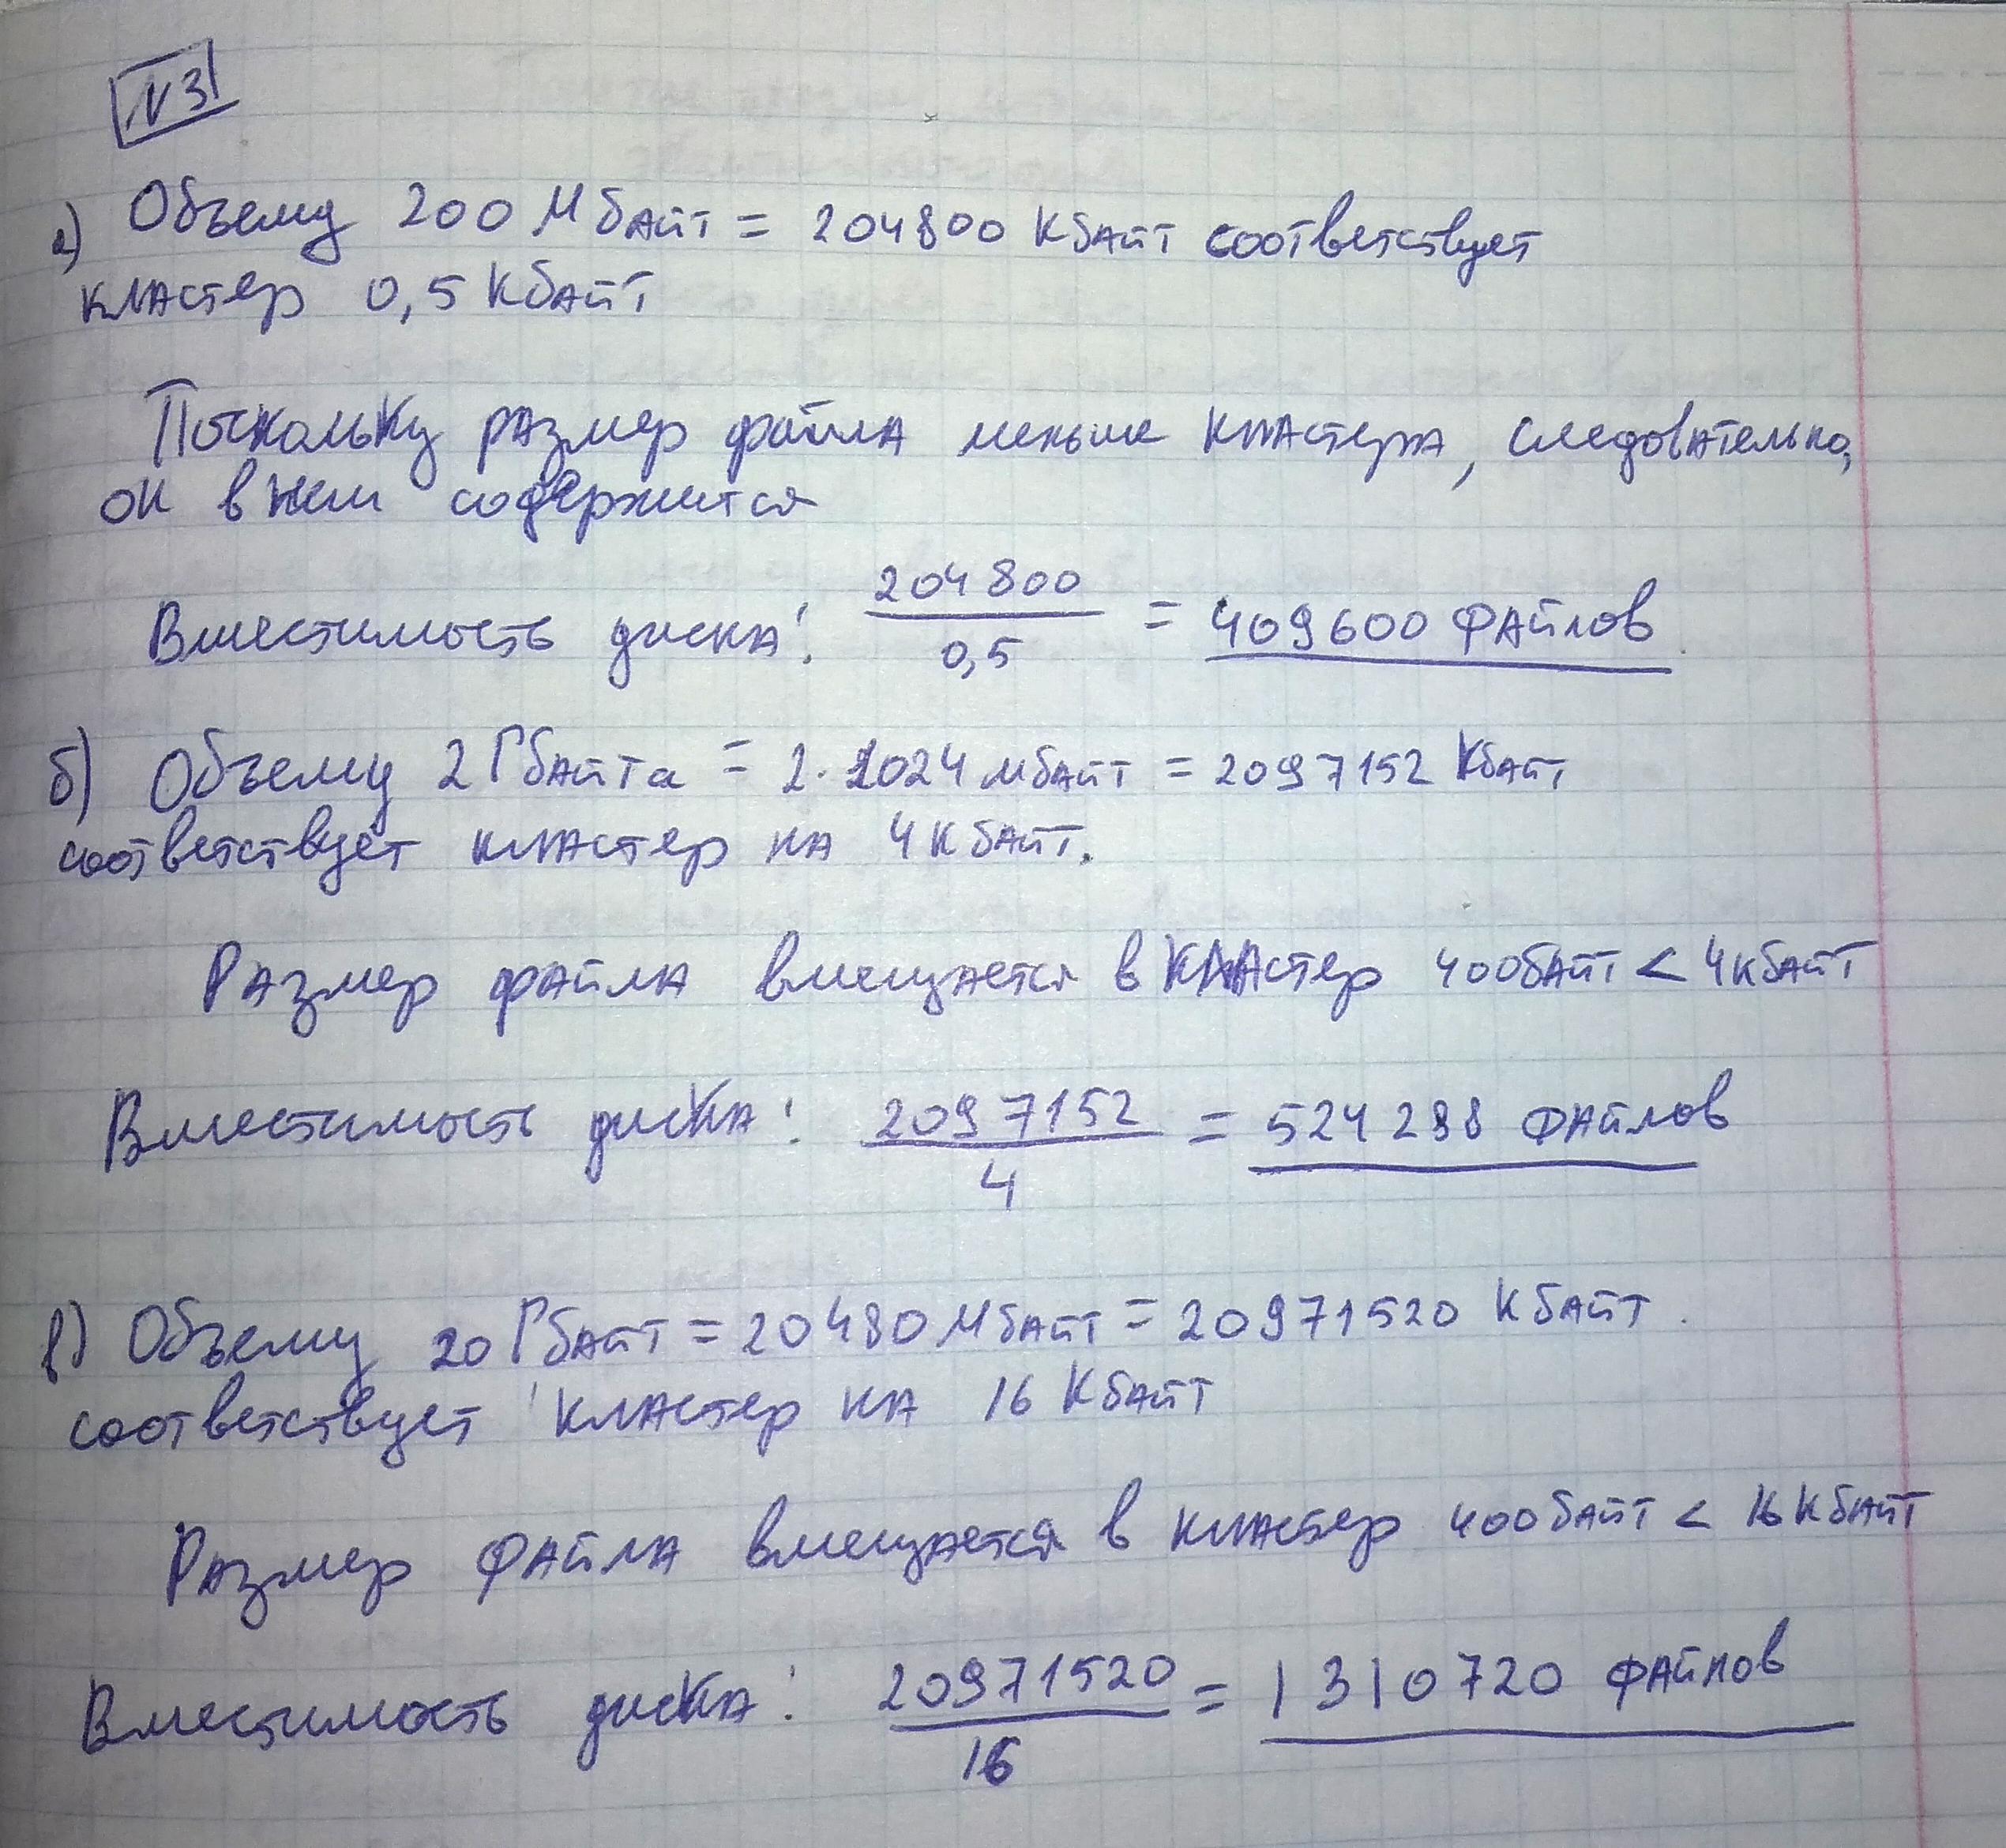 №3
а) Объему 200 Мбайт = 204800 Кбайт соответствует
кластер 0,5 Кбайт
Поскольку размер файла меньше кластера, следовательно,
он в нем содержится
Вместимость диска: 204800 / 0,5 = 409600 файлов
б) Объему 2 Гбайта = 2·1024 мбайт = 2097152 Кбайт
соответствует кластер на 4 Кбайт.
Размер файла вмещается в кластер 400байт < 4кбайт
Вместимость диска: 2097152 / 4 = 524288 файлов
в) Объему 20 Гбайт = 20480 Мбайт = 20971520 Кбайт.
соответствует кластер на 16 Кбайт
Размер файла вмещается в кластер 400байт < 16Кбайт
Вместимость диска: 20971520 / 16 = 1310720 файлов